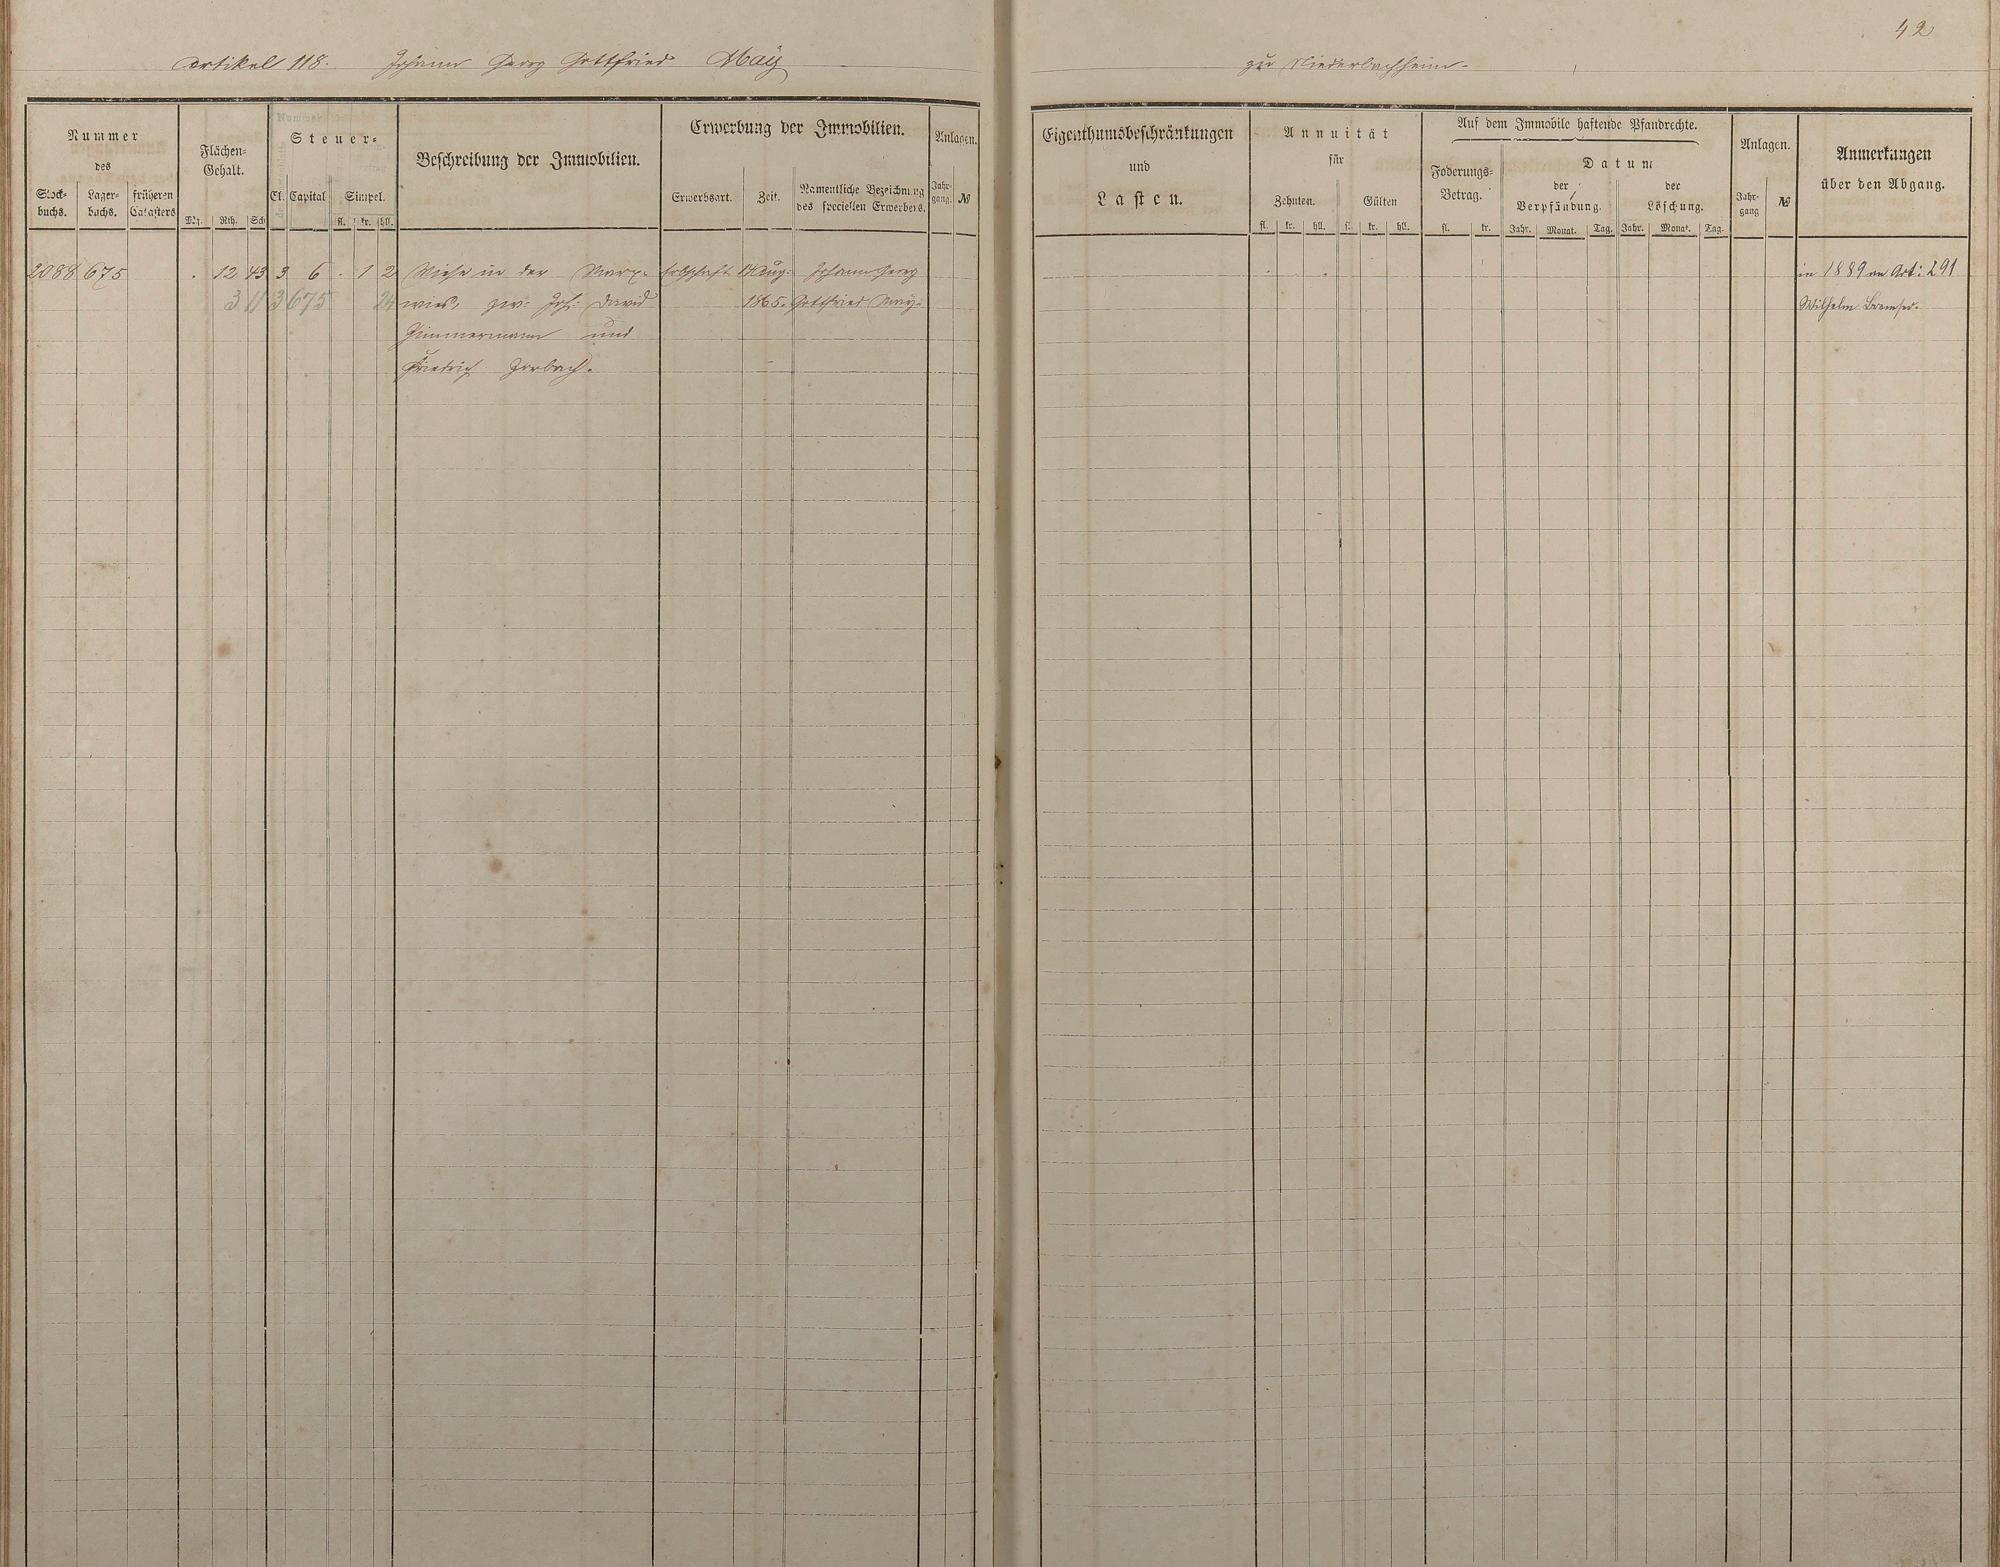 42
Artikel 118. Johann Georg Gottfried Maÿ zu Niederbachheim.
Nummer
des
Stock-
buchs.
Lager-
buchs.
früheren
Catasters
Flächen-
Gehalt.
Mg. Rth. Sch
Steuer-
Cl. Capital Simpel.
fl. kr. hll.
Beschreibung der Immobilien.
Erwerbung der Immobilien.
Erwerbsart. Zeit.
Namentliche Bezeichnung
des speciellen Erwerbers.
Anlagen.
Jahr-
gang. №
Eigenthumsbeschränkungen
und
Lasten.
Annuität
für
Zehnten. Gülten
fl. kr. hll. fl. kr. hll.
Auf dem Immobile haftende Pfandrechte.
Foderungs-
Betrag.
fl. kr.
Datum
der
Verpfändung.
Jahr. Monat. Tag.
der
Löschung.
Jahr. Monat. Tag.
Anlagen.
Jahr-
gang №
Anmerkungen
über den Abgang.
2088 675 . 12 43 3 6 . 1 2 Wiese in der Marx- Erbschaft 14 Aug. Johann Georg in 1889 an Art: 291
3 11 3 675 24 wies, zw: Joh: David 1865. Gottfried Maÿ. Wilhelm Bremser.
Zimmermann und
Friedrich Zorbach.